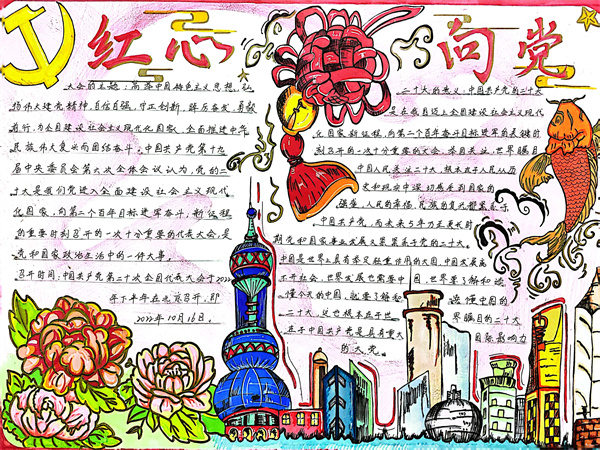 红心向党
大会的主题,高举中国特色主义思想,弘
扬伟大建党精神,自信自强,守正创新,踔厉奋发,勇毅
前行,为全国建设社会主义现代化国家,全面推进中华
民族伟大复兴而团结奋斗。中国共产党第十九
届中央委员会第六次全体会议认为,党的二
十大是我们党进入全面建设社会主义现代
化国家,向第二个百年目标进军奋斗,新征程
的重要时刻召开的一次十分重要的代表大会,是
党和国家政治生活中的一件大事。
召开时间:中国共产党第二十次全国代表大会于2022
年下半年在北京召开,即
2022年10月16日。
二十大的意义:中国共产党的二十大
是在我国迈上全国建设社会主义现代
化国家新征程,向第二个百年奋斗目标进军的关键时
刻召开的一次十分重要的大会。举国关注,世界瞩目
中国人民关注二十大,根本在于人民从历
史和现实中深切感受到国家的
强盛,人民的幸福,民族的复兴都紧系于
中国共产党,而未来5年乃至更长时
期党和国家事业发展又紧紧系于党的二十大。
中国是世界上具有举足轻重作用的大国,中国发展离
不开世界,世界发展也需要中国,世界要了解和读
懂今天的中国,就要了解和读懂中国的
二十大,这也根本在于世界瞩目的二十大
在于中国共产党是具有重大国际影响力
的大党。